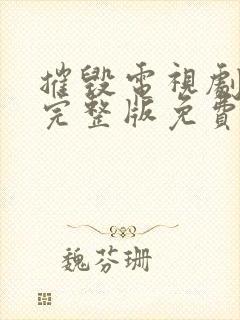 摧毀電視劇
完整版免費
魏芬珊